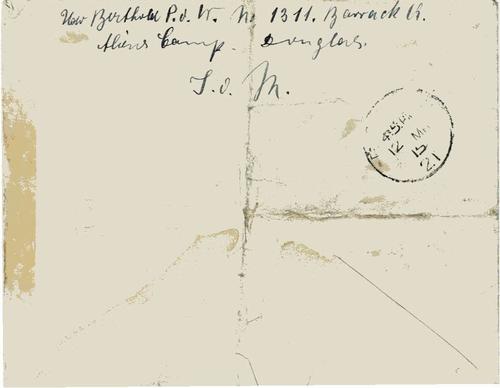 Uwe Berthold P.o.W. No 1311. Barrack 6.
Aliens Camp. Douglas.
I.o.M.
45 PM
12 MR
15
21